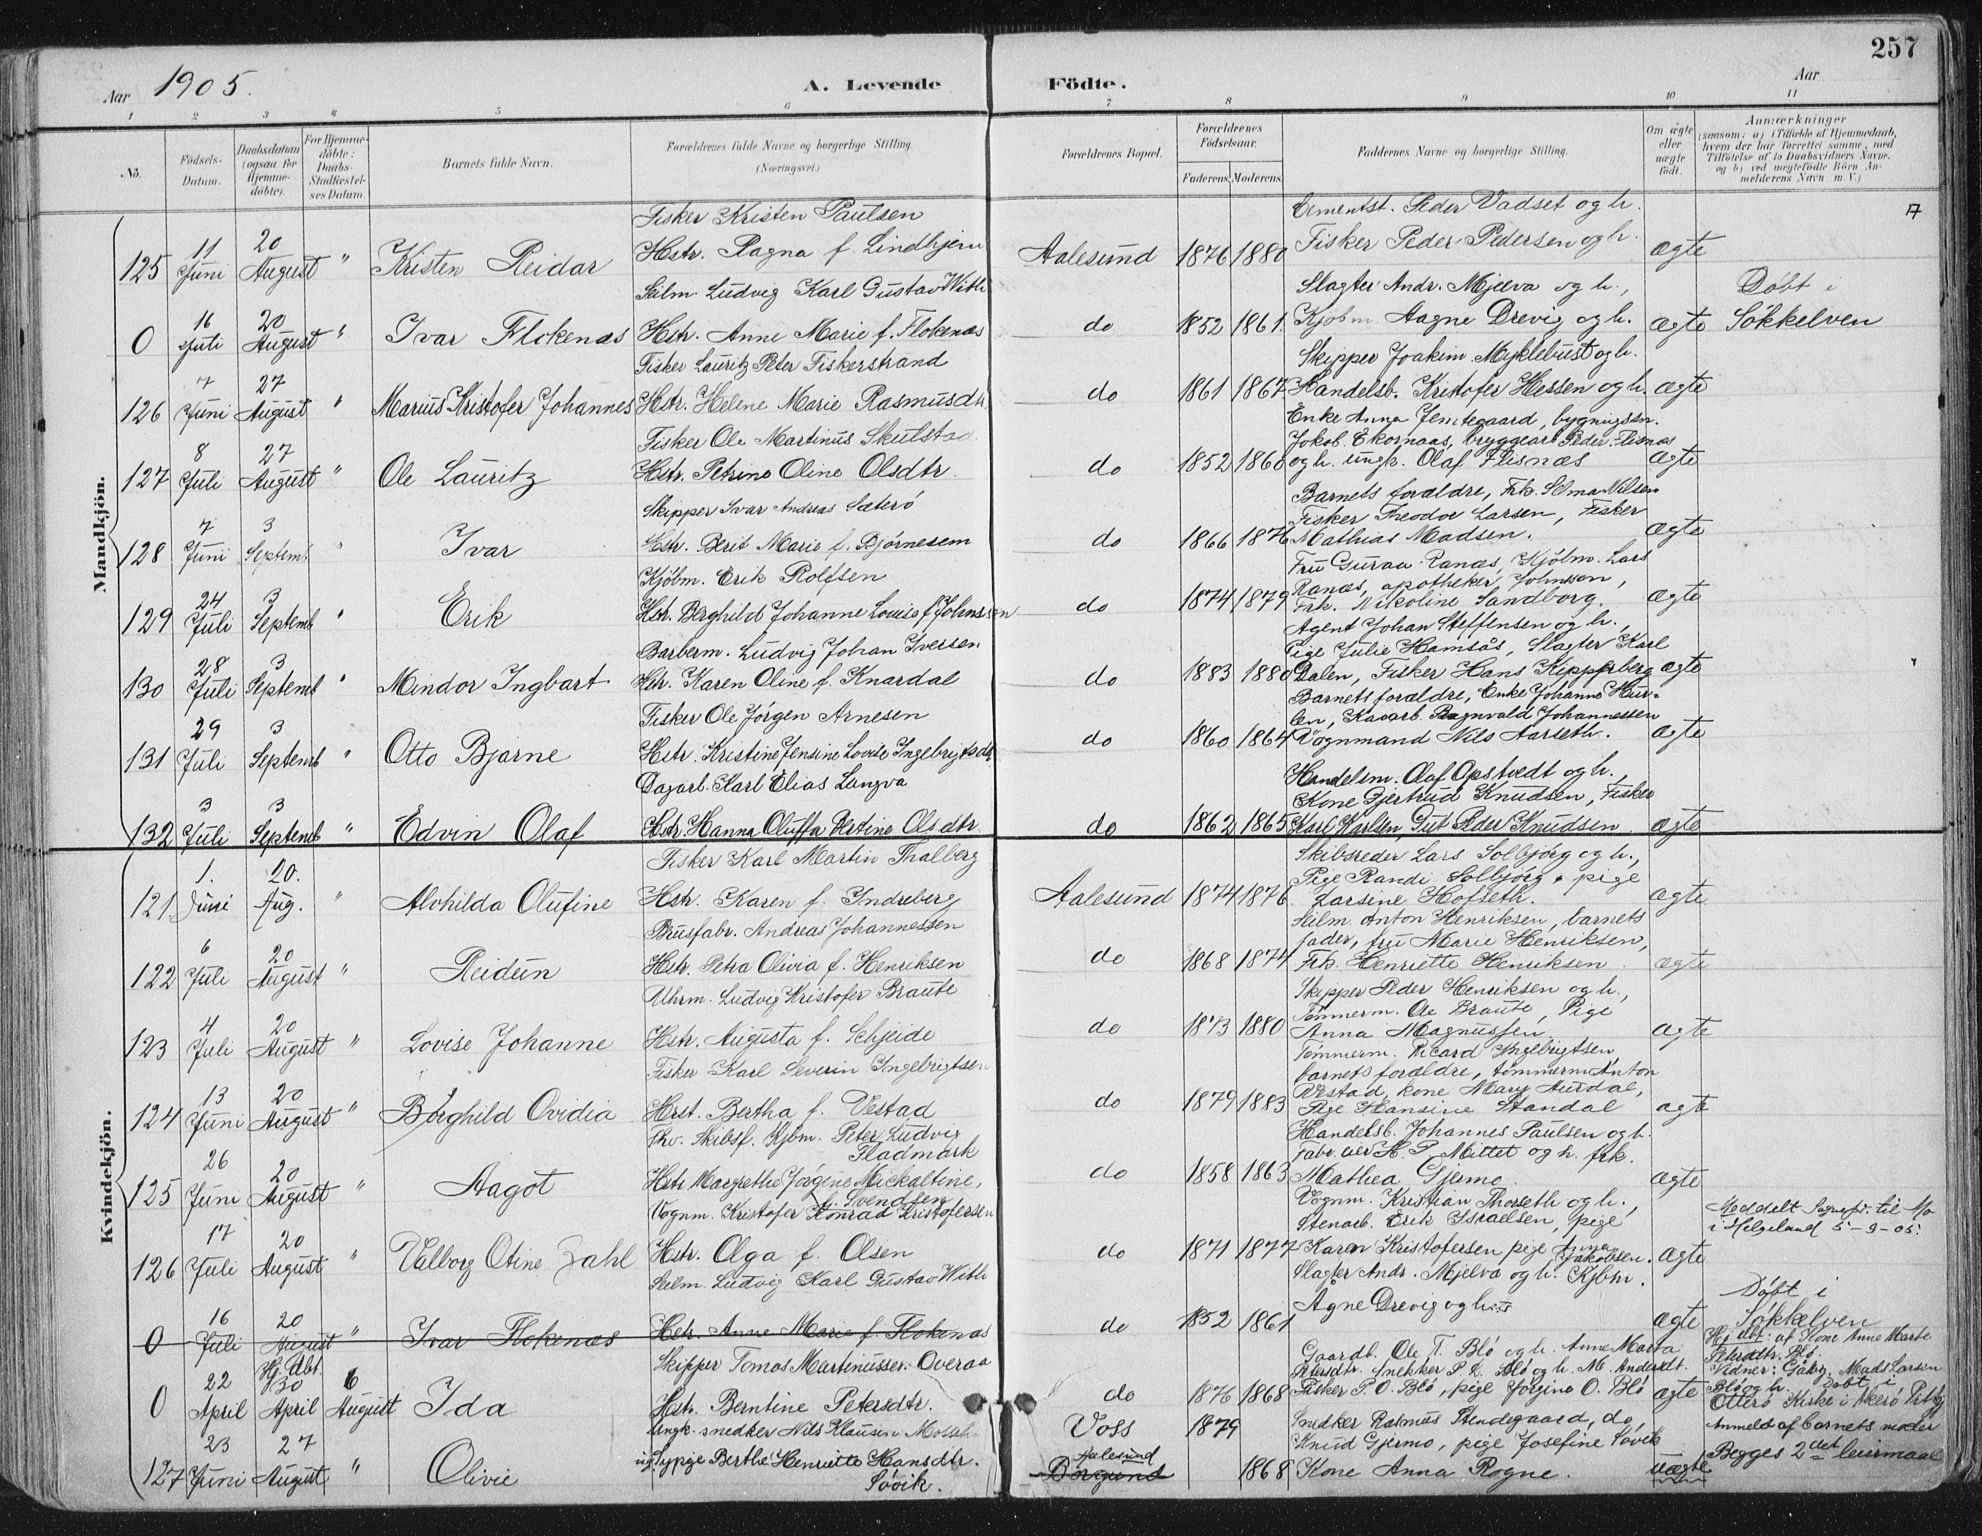 257
Aar 1905. A. Levende Födte. Aar
1 2 3 4 5 6 7 8 9 10 11
No. Födsels-Datum. Daabsdatum (ogsaa for Hjemme-döbte). For Hjemme-döbte: Daabs-Stadfæstel-ses Datum. Barnets fulde Navn. Forældrenes fulde Navne og borgerlige Stilling. (Næringsvei.) Forældrenes Bopæl. Forældrenes Födselsaar. Faderens. Moderens. Faddernes Navne og borgerlige Stilling. Om ægte eller uægte födt. Anmærkninger (saasom: a) i Tilfælde af Hjemmedaab, hvem der har forrettet samme, med Tilföielse af to Daabsvidners Navne, og b) ved uægtefödte Börn An-melderens Navn m. V.)
Mandkjön.
Fisker Kristen Paulsen Cementst. Peder Vadset og h.
125 11 Juni 20 August " Kristen Reidar Hstr. Ragna f. Lindhjem Aalesund 1876 1880 Fisker Peder Pedersen og h. ægte
Skilm. Ludvig Karl Gustav With Slagter Andr. Mjelva og h., Döbt i
0 16 Juli 20 August " Ivar Flokenæs Hstr. Anne Marie f. Flokenæs do 1852 1861. Kjöbm. Aagne Drevig og h. ægte Sökkelven
Fisker Lauritz Peter Fiskerstrand Skipper Joakim Myklebust og h.
126 7 Juni 27 August " Marius Kristofer Johannes Hstr. Helene Marie Rasmusdtr. do 1861 1867 Handelsb. Kristofer Hessen og h. ægte
Enke Anna Jemtegaard, bygningssn.
Fisker Ole Martinus Skulsta Jokob Ekornaas, bryggearb. Peder Flisnæs
127 8 Juli 27 August " Ole Lauritz Hstr. Petrine Oline Olsdtr. do 1852 1860 og h. ungk. Olaf Flisnæs ægte
Skipper Ivar Andreas Sæterö Barnets forældre, Frk. Selma Nilsen
Fisker Theodor Larsen, Fisker
128 7 Juni 3 Septemb " Ivar Hstr. Berit Marie f. Björnesem do 1866 1876 Mathias Madsen. ægte
Kjöbm. Erik Rolfsen Fru Guraa Ranæs, Kjöbm. Lars
Ranæs, apotheker Johnsen,
129 24 Juli 3 Septemb " Erik Hstr. Berghild Johanne Louise f. Johnsen do 1874 1879 Frk. Nikoline Sandborg. ægte
Agent Johan Steffensen og h.,
Barberm. Ludvig Johan Iversen Pige Julie Hamsås, Slagter Karl
130 28 Juli 3 Septemb " Mindor Ingbart Hstr. Karen Oline f. Knardal do 1883 1880 Dalen, Fisker Hans Kippersberg ægte
Barnets forældre, Enke Johanne Hur-
Fisker Ole Jörgen Arnesen len, Kaiarb. Ragnvald Johannessen
131 29 Juli 3 Septemb " Otto Bjarne Hstr. Kristine Jensine Lovise Ingebrigtsdtr do 1860 1864 Vognmand Nils Aarseth. ægte
Dagarb. Karl Elias Langva Handelsm. Olaf Opstvedt og h.,
Kone Gjertrud Knudsen, Fisker
132 3 Juli 3 Septemb " Edvin Olaf Hstr. Hanna Oluffa Hertine Olsdtr do 1862 1865 Karl Karlsen, Gut Peder Knudsen. ægte
Kvindekjön.
Fisker Karl Martin Thalberg Skibsreder Lars Solbjörg og h.,
Pige Randi Solbjörg, pige
121. 1. Juni 20. Aug. " Alvhilda Olufine Hstr. Karen f. Indreberg Aalesund 1874 1876 Larsine Hofseth. ægte
Brusfabr. Andreas Johannessen Skilm. Anton Henriksen, barnets
fader, fru Marie Henriksen,
122 6 Juli 20 August " Reidun Hstr. Petra Olivia f. Henriksen do 1868 1874 Frk. Henriette Henriksen. ægte
Uhrm. Ludvig Kristofer Braute Skipper Peder Henriksen og h.,
Tömmerm. Ole Braute, Pige
123 4 Juli 20 August " Lovise Johanne Hstr. Augusta f. Schjeide do 1873 1880 Anna Magnussen. ægte
Fisker Karl Severin Ingebrigtsen Tömmerm. Ricard Ingebrigtsen,
barnets forældre, tömmerm. Anton
124 13 Juni 20 August " Borghild Ovidia Hstr. Bertha f. Vestad do 1879 1883 Vestad, kone Mary Aurdal, Pige Hansine Standal ægte
Fhv. Skibsf. Kjbm. Peter Ludvig Fladmark Handelsb. Johannes Paulsen og h.
Fabr. eier H. P. Mittet og h. frk.
125 26 Juni 20 August " Aagot Hstr. Margrethe Jörgine Mickaltine, f. Svendsen do 1858 1863 Mathea Gjermo. ægte
Vognm. Kristofer Konrad Kristofersen Vognm. Kristian Thorseth og h., Meddelt Sognepr. til Mo
Stenarb. Erik Israelsen, pige i Helgeland 5-9-05.
126 17 Juli 20 August " Valborg Otine Dahl Hstr. Olga f. Olsen do 1871 1877 Karen Kristofersen pige Anna Jakobsen. ægte
Skilm. Ludvig Karl Gustav With Slagter Andr. Mjelva og h. Kjbm. Döbt i
0 16 Juli 20 August " Ivar Flokenæs Hstr. Anne Marie f. Flokenæs do 1852 1861 Agne Drevig og h. ægte Sökkelven
Skipper Tomas Martinussen Overaa Gaardb. Ole T. Blö og h. Anne Marta Hj. dbt. af Kone Anne Marte
Petersdtr. Snekker P. L. Blö og h. M. Andersdt. Petersdtr. Blö.
0 22 April Hj. dbt 30 April 6 August Ida Hstr. Berntine Petersdtr. do 1876 1868 Fisker P. O. Blö, pige Jörgine O. Blö ægte Vidner: Gåbr. Mads Larsen Blö og h. Döbt i Otterö Kirke i Akerö
Ungk. snedker Nils Klausen Voss 1879 Snedker Rasmus Stendegaard, do, Anmeld af barnets moder
Knud Gjermo, pige Josefine Sövik
127 23 Juni 27 August " Olivie ug pige Berthe Henriette Hansdtr. Sövik. Aalesund Borgund 1868 Kone Anna Rogne. uægte Begges 2det leiermaal